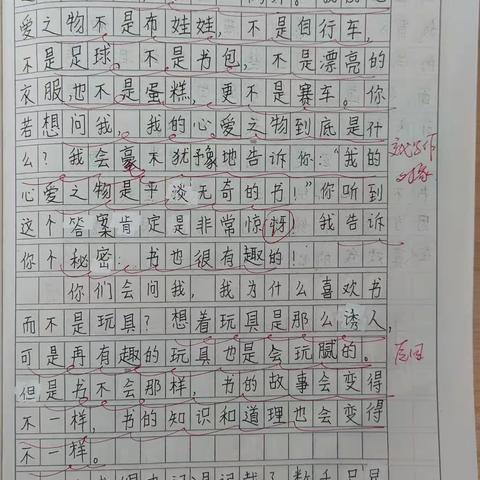 爱之物不是布娃娃，不是自行车，
不是足球。不是书包，不是漂亮的
衣服也不是蛋糕，更不是赛车。你
若想问我，我的心爱之物到底是什
么？我会毫不犹豫地告诉你：“我的
心爱之物是平淡无奇的书！”你听到
这个答案肯定是非常惊讶！我告诉
你个秘密：书也很有趣的！
你们会问我，我为什么喜欢书
而不是玩具？想着玩具是那么诱人，
可是再有趣的玩具也是会玩腻的。
但是书不会那样，书的故事会变得
不一样，书的知识和道理也会变得
不一样。